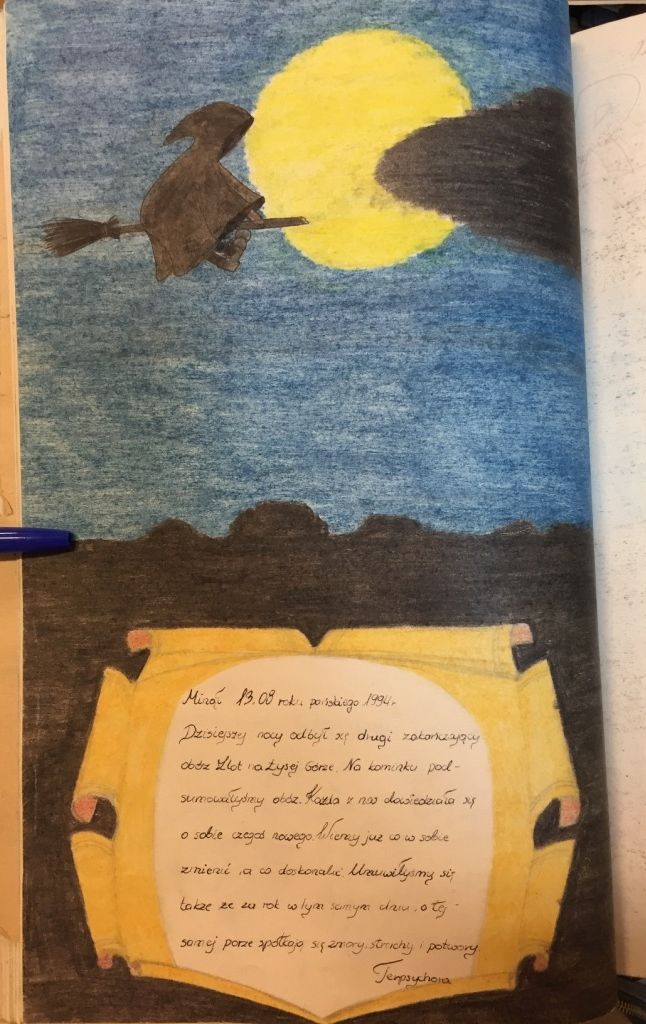 Minął 13.08 roku pańskiego 1994r.
Dzisiejszej nocy odbył się drugi zakończający
obóz Zlot na Łysej Górze. Na kominku pod-
sumowałyśmy obóz. Każda z nas dowiedziała się
o sobie czegoś nowego. Wiemy już co w sobie
zmienić, a co doskonalić. Umówiłyśmy się
także że za rok w tym samym dniu, o tej
samej porze spotkają się zmory, strachy i potwory.
Terpsychora